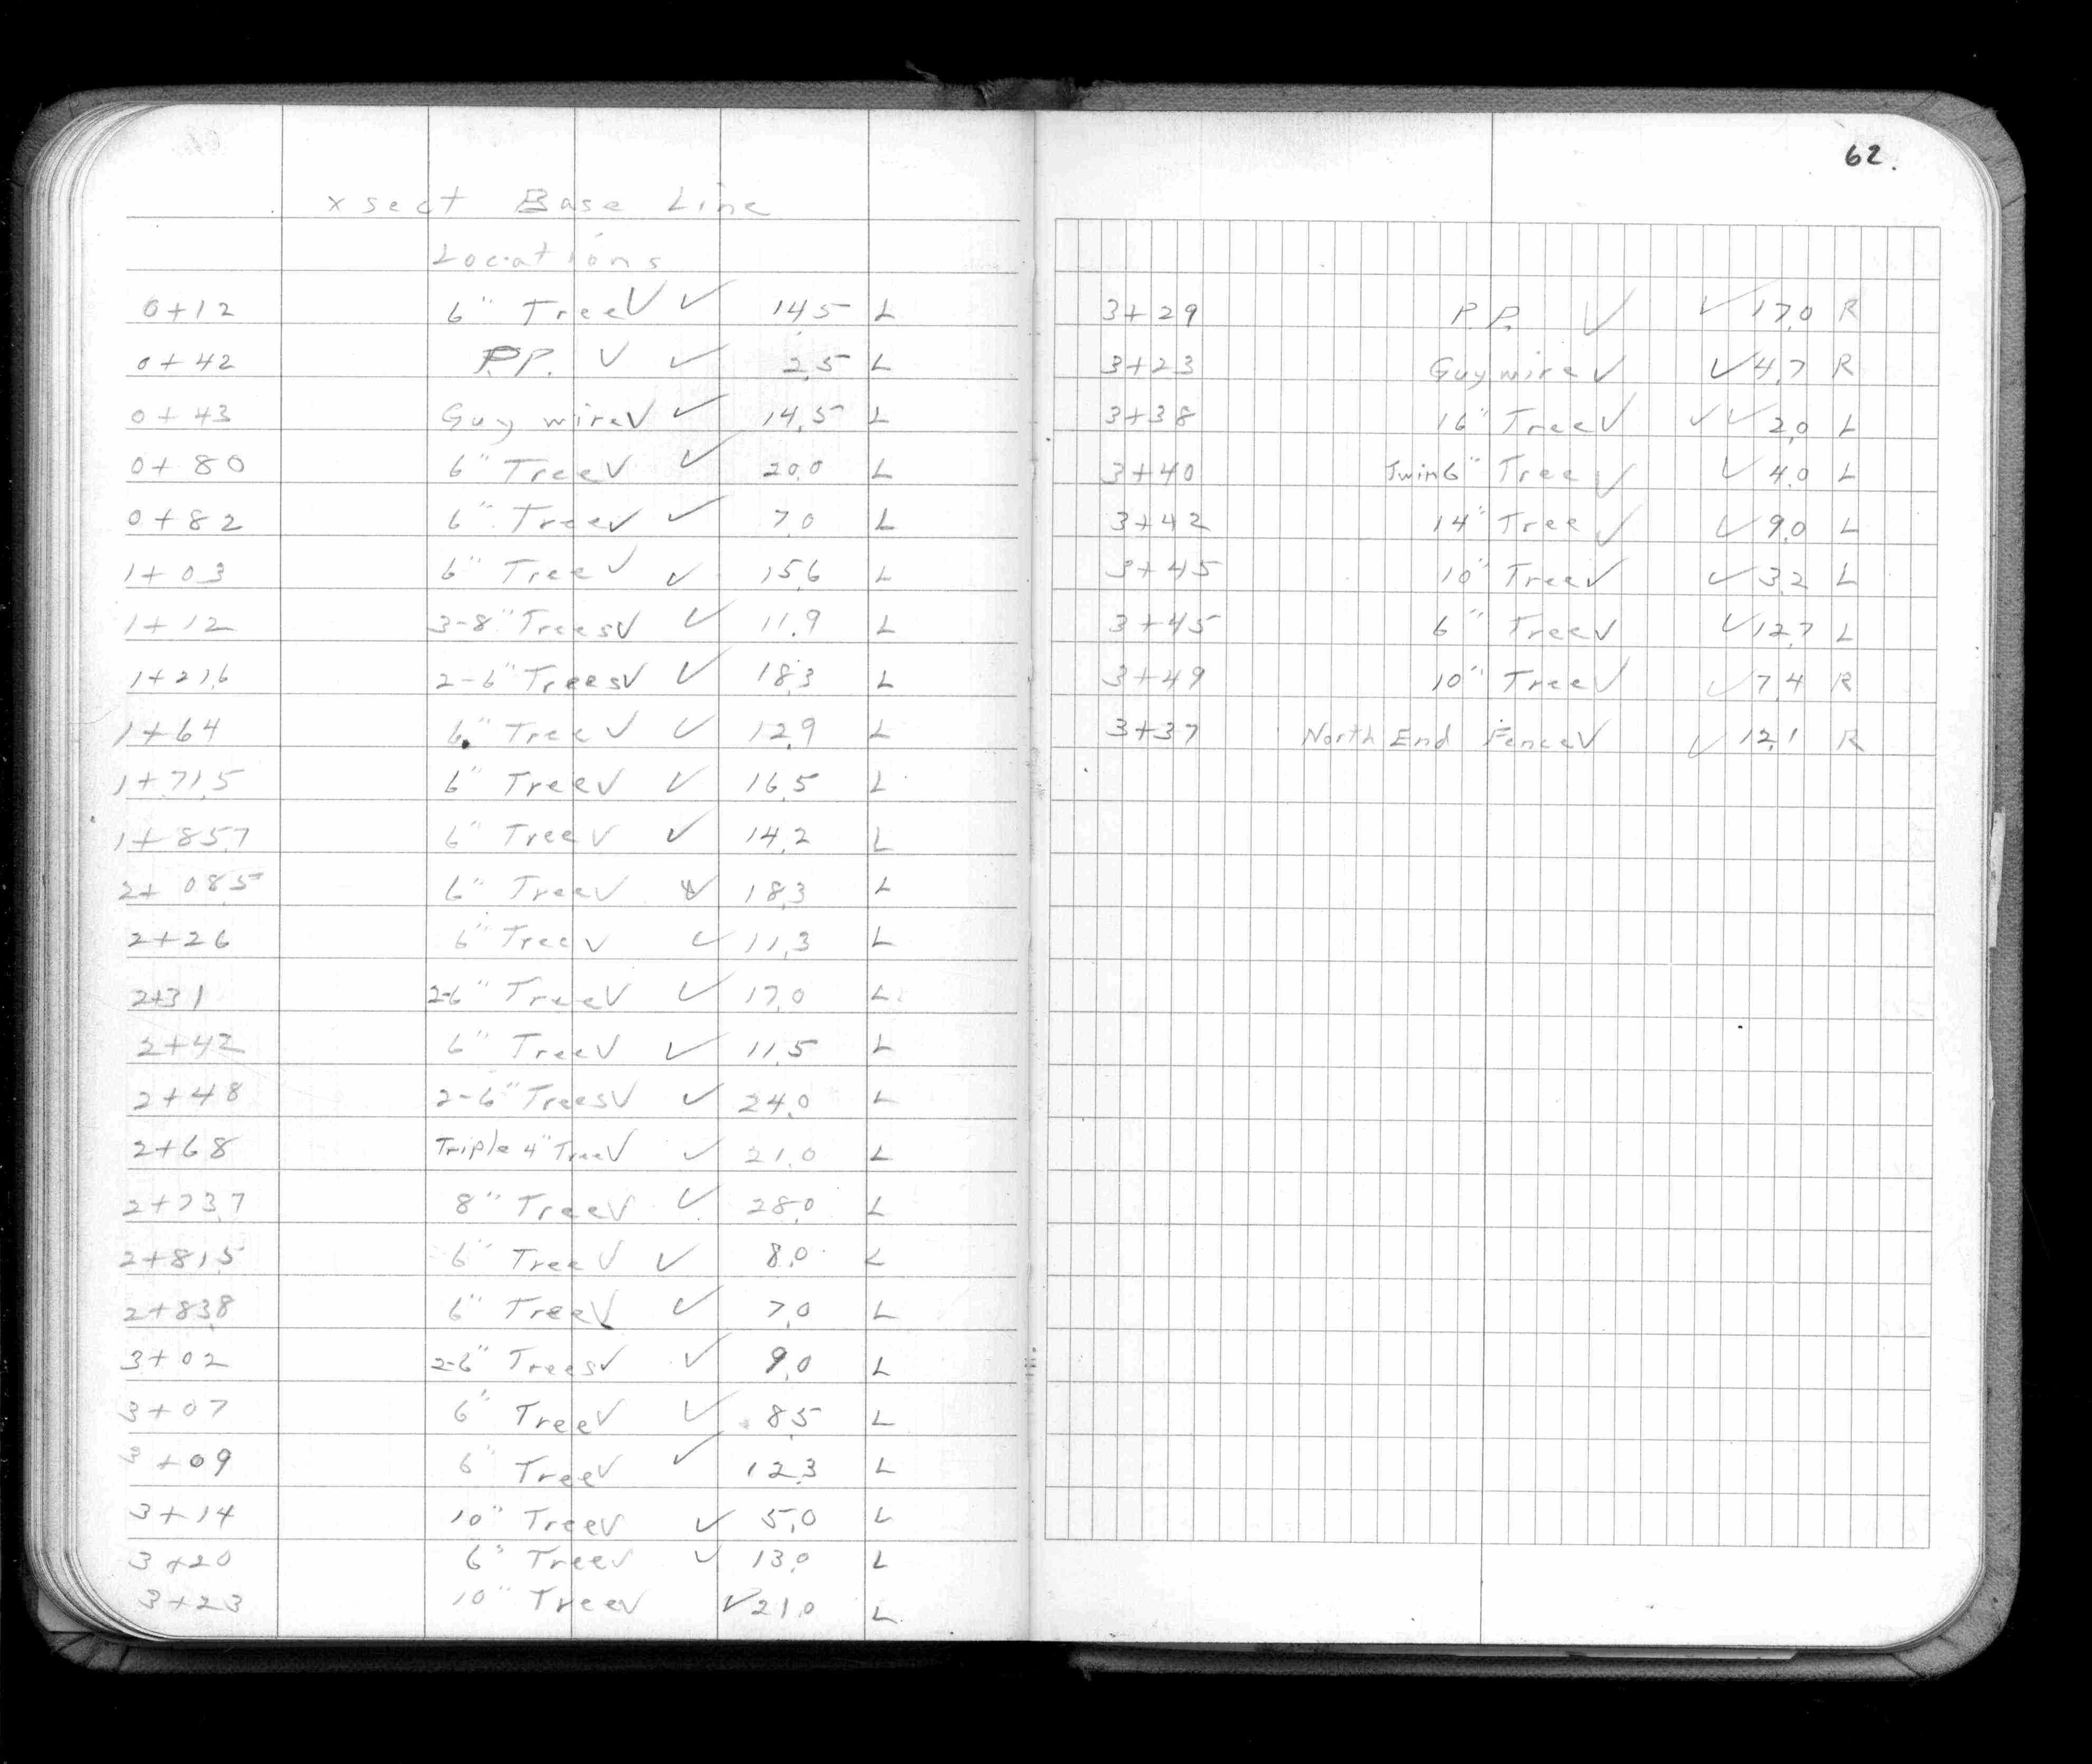 x sect Base Line
Locations
0+12 6" Tree ✓ ✓ 14.5 L
0+42 P.P. ✓ ✓ 2.5 L
0+43 Guy wire ✓ ✓ 14.5 L
0+80 6" Tree ✓ ✓ 20.0 L
0+82 6" Tree ✓ ✓ 7.0 L
1+03 6" Tree ✓ ✓ 15.6 L
1+12 3-8" Trees ✓ ✓ 11.9 L
1+21.6 2-6" Trees ✓ ✓ 18.3 L
1+64 6" Tree ✓ ✓ 12.9 L
1+71.5 6" Tree ✓ ✓ 16.5 L
1+85.7 6" Tree ✓ ✓ 14.2 L
2+08.5 6" Tree ✓ ✓ 18.3 L
2+26 6" Tree ✓ ✓ 11.3 L
2+31 2-6" Tree ✓ ✓ 17.0 L
2+42 6" Tree ✓ ✓ 11.5 L
2+48 2-6" Trees ✓ ✓ 24.0 L
2+68 Triple 4" Tree ✓ ✓ 21.0 L
2+73.7 8" Tree ✓ ✓ 28.0 L
2+81.5 6" Tree ✓ ✓ 8.0 L
2+83.8 6" Tree ✓ ✓ 7.0 L
3+02 2-6" Trees ✓ ✓ 9.0 L
3+07 6" Tree ✓ ✓ 8.5 L
3+09 6" Tree ✓ ✓ 12.3 L
3+14 10" Tree ✓ ✓ 5.0 L
3+20 6" Tree ✓ ✓ 13.0 L
3+23 10" Tree ✓ ✓ 21.0 L
62.
3+29 P.P. ✓ ✓ 17.0 R
3+23 Guy wire ✓ ✓ 4.7 R
3+38 16" Tree ✓ ✓ ✓ 2.0 L
3+40 Twin 6" Tree ✓ ✓ 4.0 L
3+42 14" Tree ✓ ✓ 9.0 L
3+45 10" Tree ✓ ✓ 3.2 L
3+45 6" Tree ✓ ✓ 12.7 L
3+49 10" Tree ✓ ✓ 7.4 R
3+37 North End Fence ✓ ✓ 12.1 R